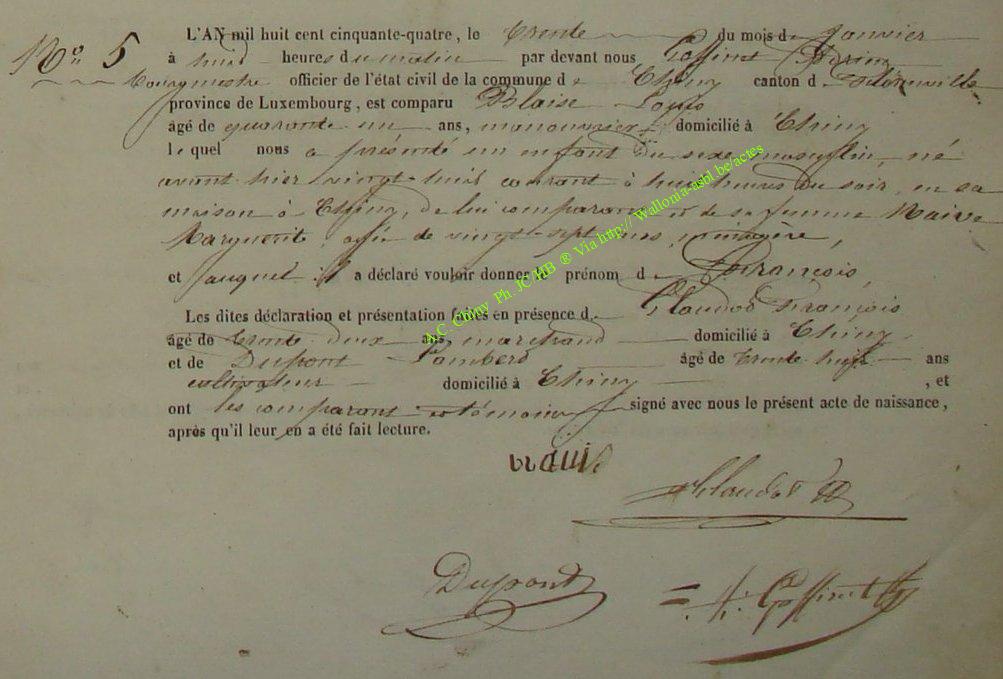 No 5
L'AN mil huit cent cinquante-quatre, le trente du mois d Janvier
à huit heures du matin par devant nous Goffinet
Bourgmestre officier de l'état civil de la commune d e Chiny canton d e Florenville
province de Luxembourg, est comparu Blaise Louis
âgé de quarante un ans, manouvrier domicilié à Chiny
le quel nous a présenté un enfant du sexe masculin, né
avant hier vingt-huit courant à huit heures du soir, en sa
maison à Chiny, de lui comparant et de sa femme
Marguerite, agée de vingt-sept ans, ménagère,
et auquel il a déclaré vouloir donner le prénom d e François,
Les dites déclaration et présentation faites en présence d e Claudot François
âgé de trente deux ans, marchand domicilié à Chiny
et de Dupont Lambert âgé de trente huit ans
cultivateur domicilié à Chiny , et
ont les comparant et témoins signé avec nous le présent acte de naissance,
après qu'il leur en a été fait lecture.
A.C. Chiny Ph. JC MB ® Via http:// Wallonia-asbl.be/actes
Claudot
Dupont
Goffinet